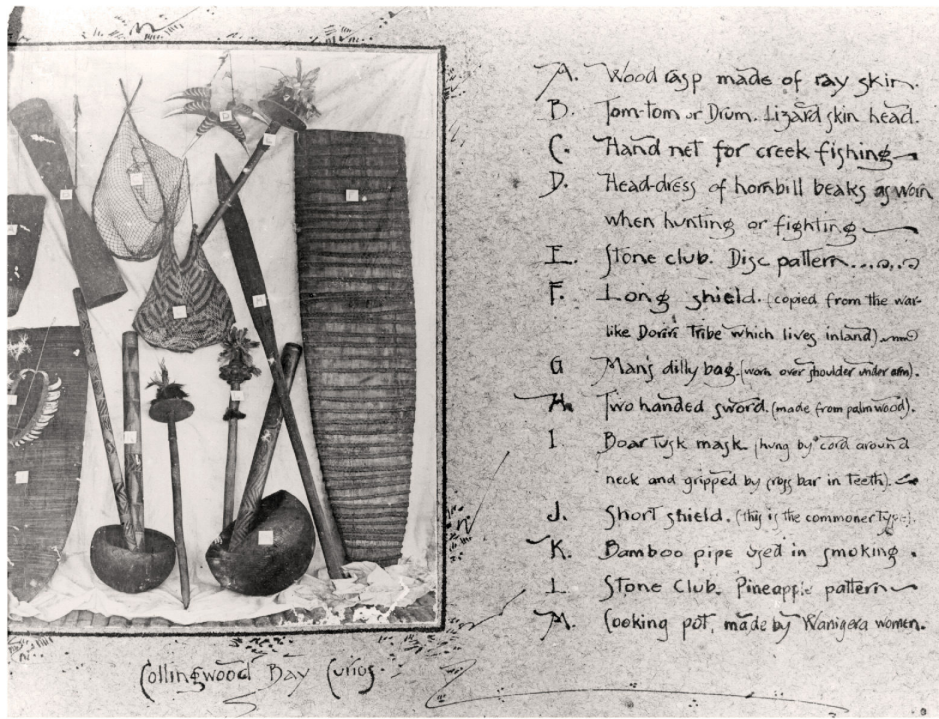 A. Wood rasp made of ray skin.
B. Tom-tom or Drum. Lizard skin head.
C. Hand net for creek fishing
D. Head-dress of hornbill beaks as worn
when hunting or fighting
E. Stone club. Disc pattern....
F. Long shield. (copied from the war-
like Doriri Tribe which lives inland)
G Man's dilly bag. (worn over shoulder under arm).
H. Two handed sword. (made from palm wood).
I. Boar tusk mask (hung by cord around
neck and gripped by cross bar in teeth).
J. Short shield. (this is the commoner type).
K. Bamboo pipe used in smoking.
L. Stone Club. Pineapple pattern
M. Cooking pot, made by Wanigera women.
Collingwood Bay Curios.